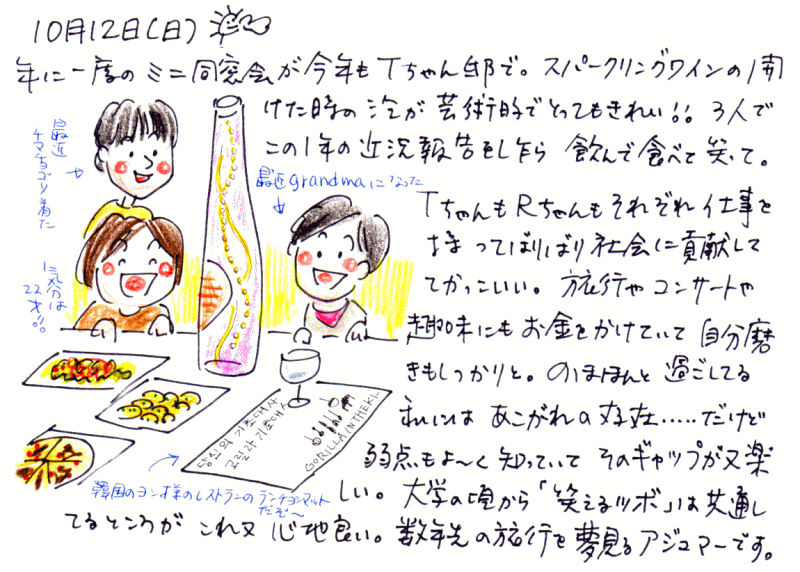 10月12日(日)
年に一度のミニ同窓会が今年もTちゃん邸で。スパークリングワインの1開
けた時の泡が芸術的でとってもきれい!!3人で
この1年の近況報告をし乍ら 飲んで食べて笑って。
最近
チマチョゴリ着た
最近grandmaになった
TちゃんもRちゃんもそれぞれ仕事を
持ってばりばり社会に貢献して
てかっこいい。旅行やコンサートや
気分は
22才!!
趣味にもお金をかけていて自分磨
きもしっかりと。のほほんと過ごしてる
私には あこがれの存在……だけど
弱点もよ〜く知っていて そのギャップが又楽
당신의 기초대사
고릴라 기초대사
GORILLA IN THE KI
韓国のヨン様のレストランのランチョンマット
だぞ〜
しい。大学の頃から「笑えるツボ」は共通し
てるところが これ又 心地良い。数年先の旅行を夢見るアジュマーです。